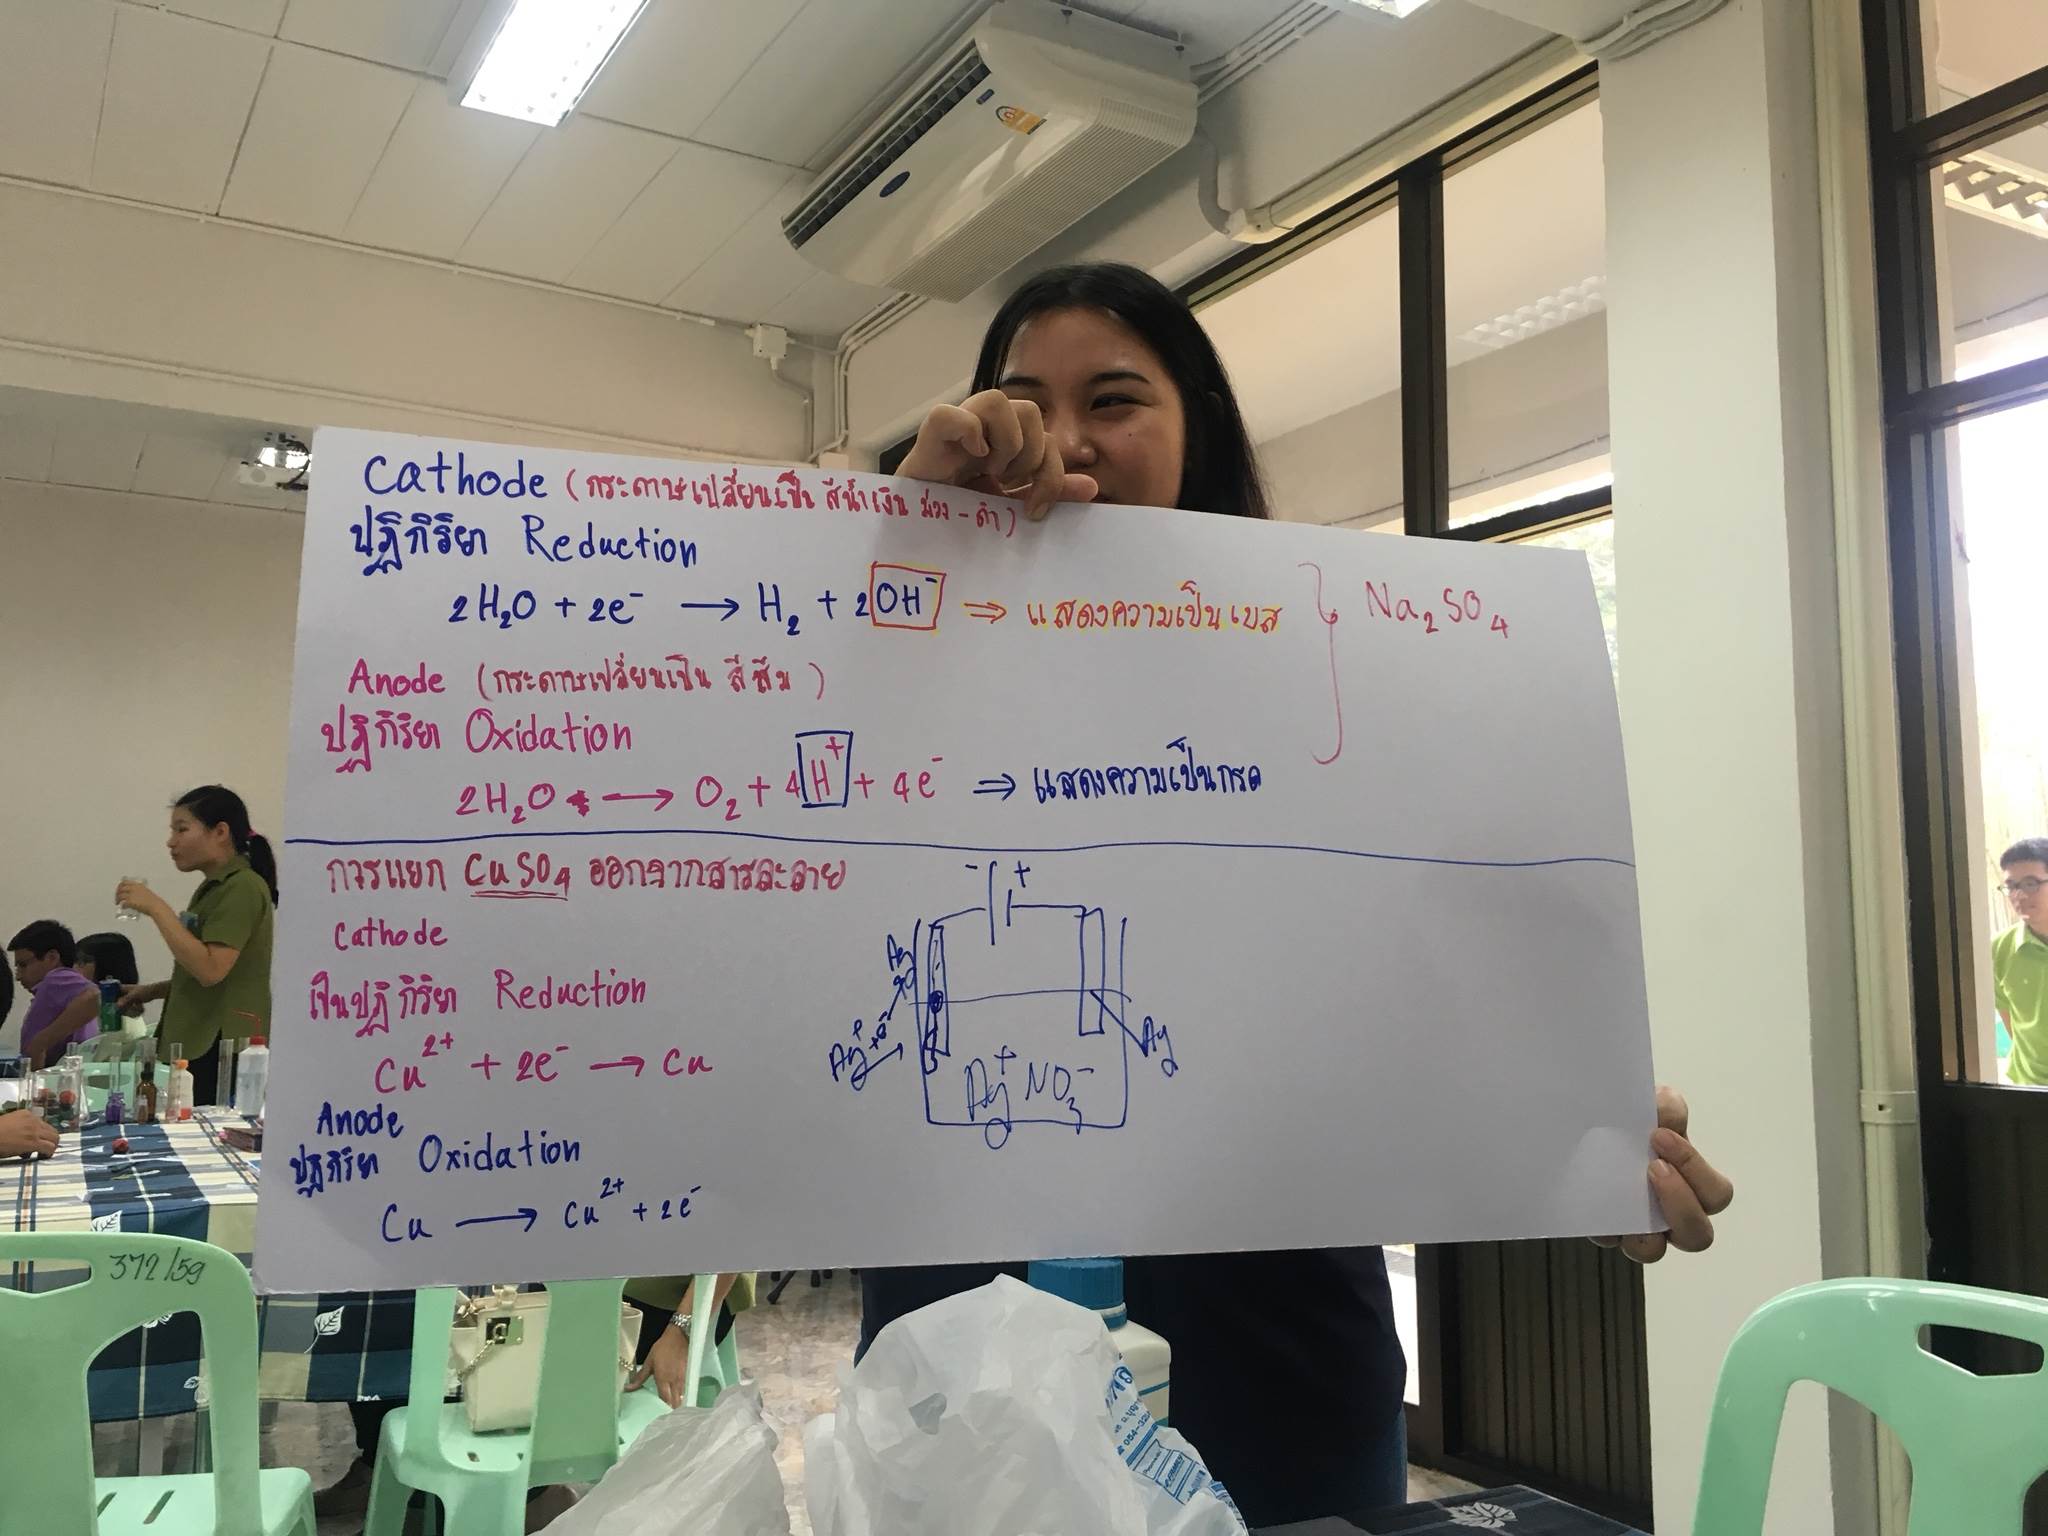 Cathode (กระดาษเปลี่ยนเป็น สีน้ำเงิน ม่วง - ดำ)
ปฏิกิริยา Reduction
2H₂O + 2e⁻ → H₂ + 2OH⁻ ⇒ แสดงความเป็นเบส
Na₂SO₄
Anode (กระดาษเปลี่ยนเป็น สีส้ม)
ปฏิกิริยา Oxidation
2H₂O → O₂ + 4H⁺ + 4e⁻ ⇒ แสดงความเป็นกรด
การแยก CuSO₄ ออกจากสารละลาย
Cathode
เป็นปฏิกิริยา Reduction
Cu²⁺ + 2e⁻ → Cu
Anode
ปฏิกิริยา Oxidation
Cu → Cu²⁺ + 2e⁻
- +
Ag
Ag⁺ + e⁻
Ag
Ag⁺ NO₃⁻
372/59